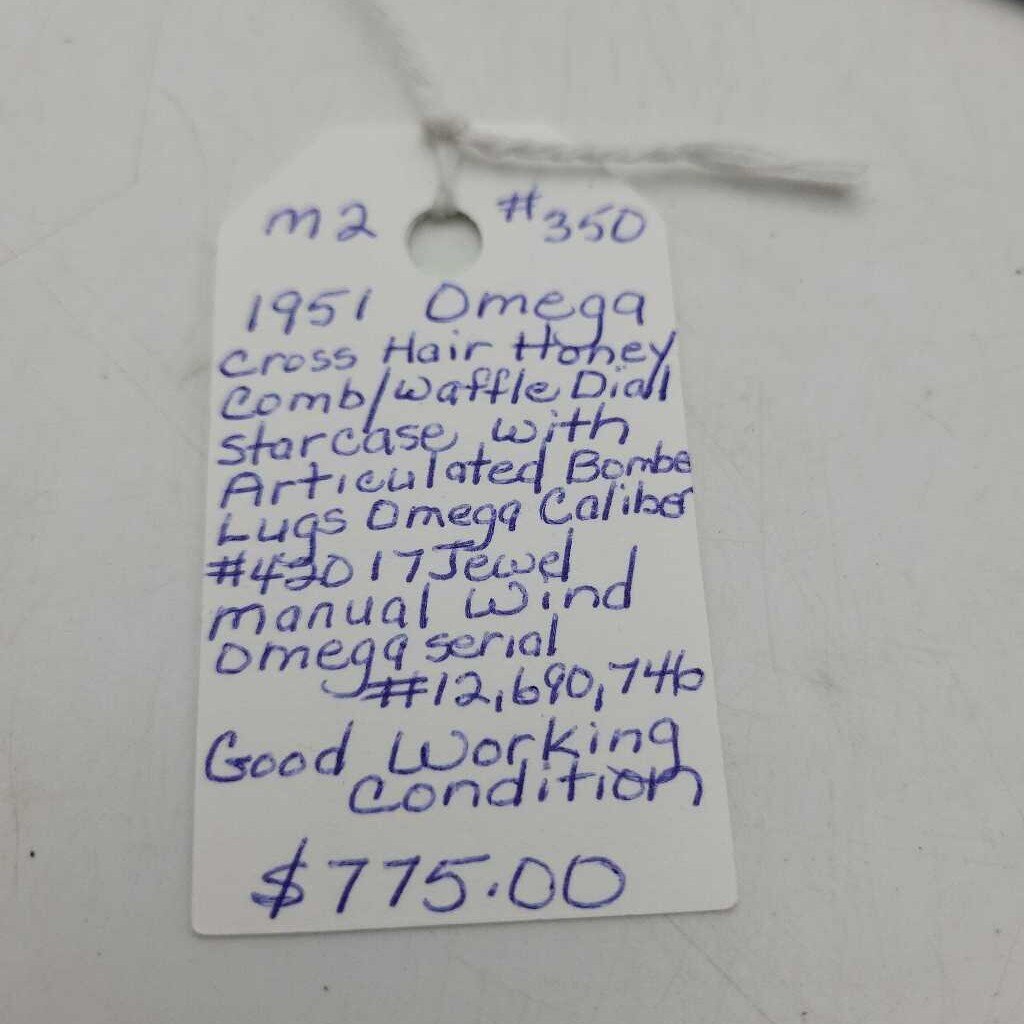 m2 #350
1951 Omega
Cross Hair Honey
Comb/Waffle Diall
starcase with
Articulated Bombe
Lugs Omega Caliber
#420 17 Jewel
manual Wind
Omega serial
#12,690,746
Good Working
Condition
$775.00